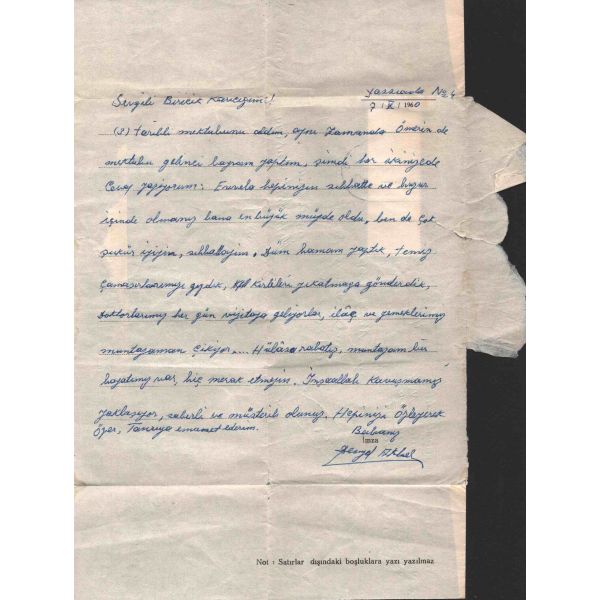 Yassıada No 4
7/X/1960
Sevgili Biricik Karıcığım!
(2) tarihli mektubunu aldım, aynı zamanda Ömerin de
mektubu gelince bayram yaptım, şimdi her ikinizede
Cevap yazıyorum. Evvela hepinizin sıhhatte ve huzur
içinde olmanız bana en büyük müjde oldu, ben de çok
şükür iyiyim, sıhhattayım. Dün hamam yaptık, temiz
Çamaşırlarımızı giydik, kirlileri yıkatmaya gönderdik,
Doktorlarımız her gün vizitaya geliyorlar, ilâç ve yemeklerimiz
muntazaman çıkıyor.... Hülâsa rahatız, muntazam bir
hayatımız var, hiç merak etmeyin. İnşaallah Kavuşmamız
yaklaşıyor, sabırlı ve müsterih olunuz. Hepinizi Özleyerek
Öper, Tanrıya emanet ederim.
Babanız
İmza
Not : Satırlar dışındaki boşluklara yazı yazılmaz